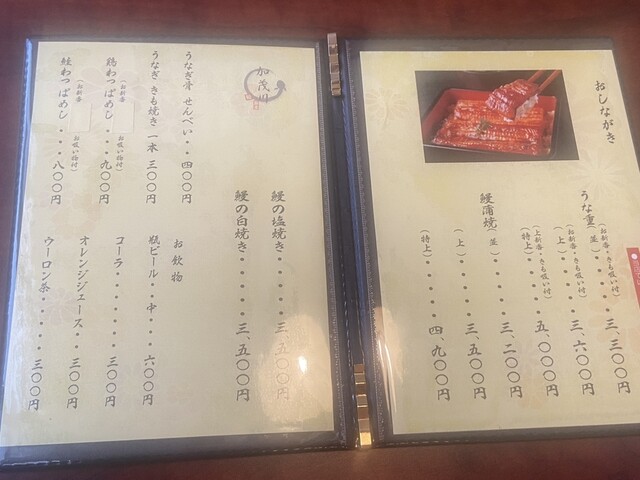 おしながき
うな重（並）・・・・三、三〇〇円
（お新香・きも吸い付）
（上）・・・・三、六〇〇円
（お新香・きも吸い付）
（特上）・・・・五、〇〇〇円
（上新香・きも吸い付）
鰻蒲焼（並）・・・・三、二〇〇円
（上）・・・・三、五〇〇円
（特上）・・・・四、九〇〇円
加茂川
鰻の塩焼き・・・・三、五〇〇円
鰻の白焼き・・・・・三、五〇〇円
うなぎ骨せんべい・・四〇〇円
うなぎきも焼き一本 三〇〇円
鶏わっぱめし・・・・九〇〇円
（お新香 お吸い物付）
鮭わっぱめし・・・・八〇〇円
（お新香 お吸い物付）
お飲物
瓶ビール・・中・・・六〇〇円
コーラ・・・・・・・三〇〇円
オレンジジュース・・三〇〇円
ウーロン茶・・・・・三〇〇円